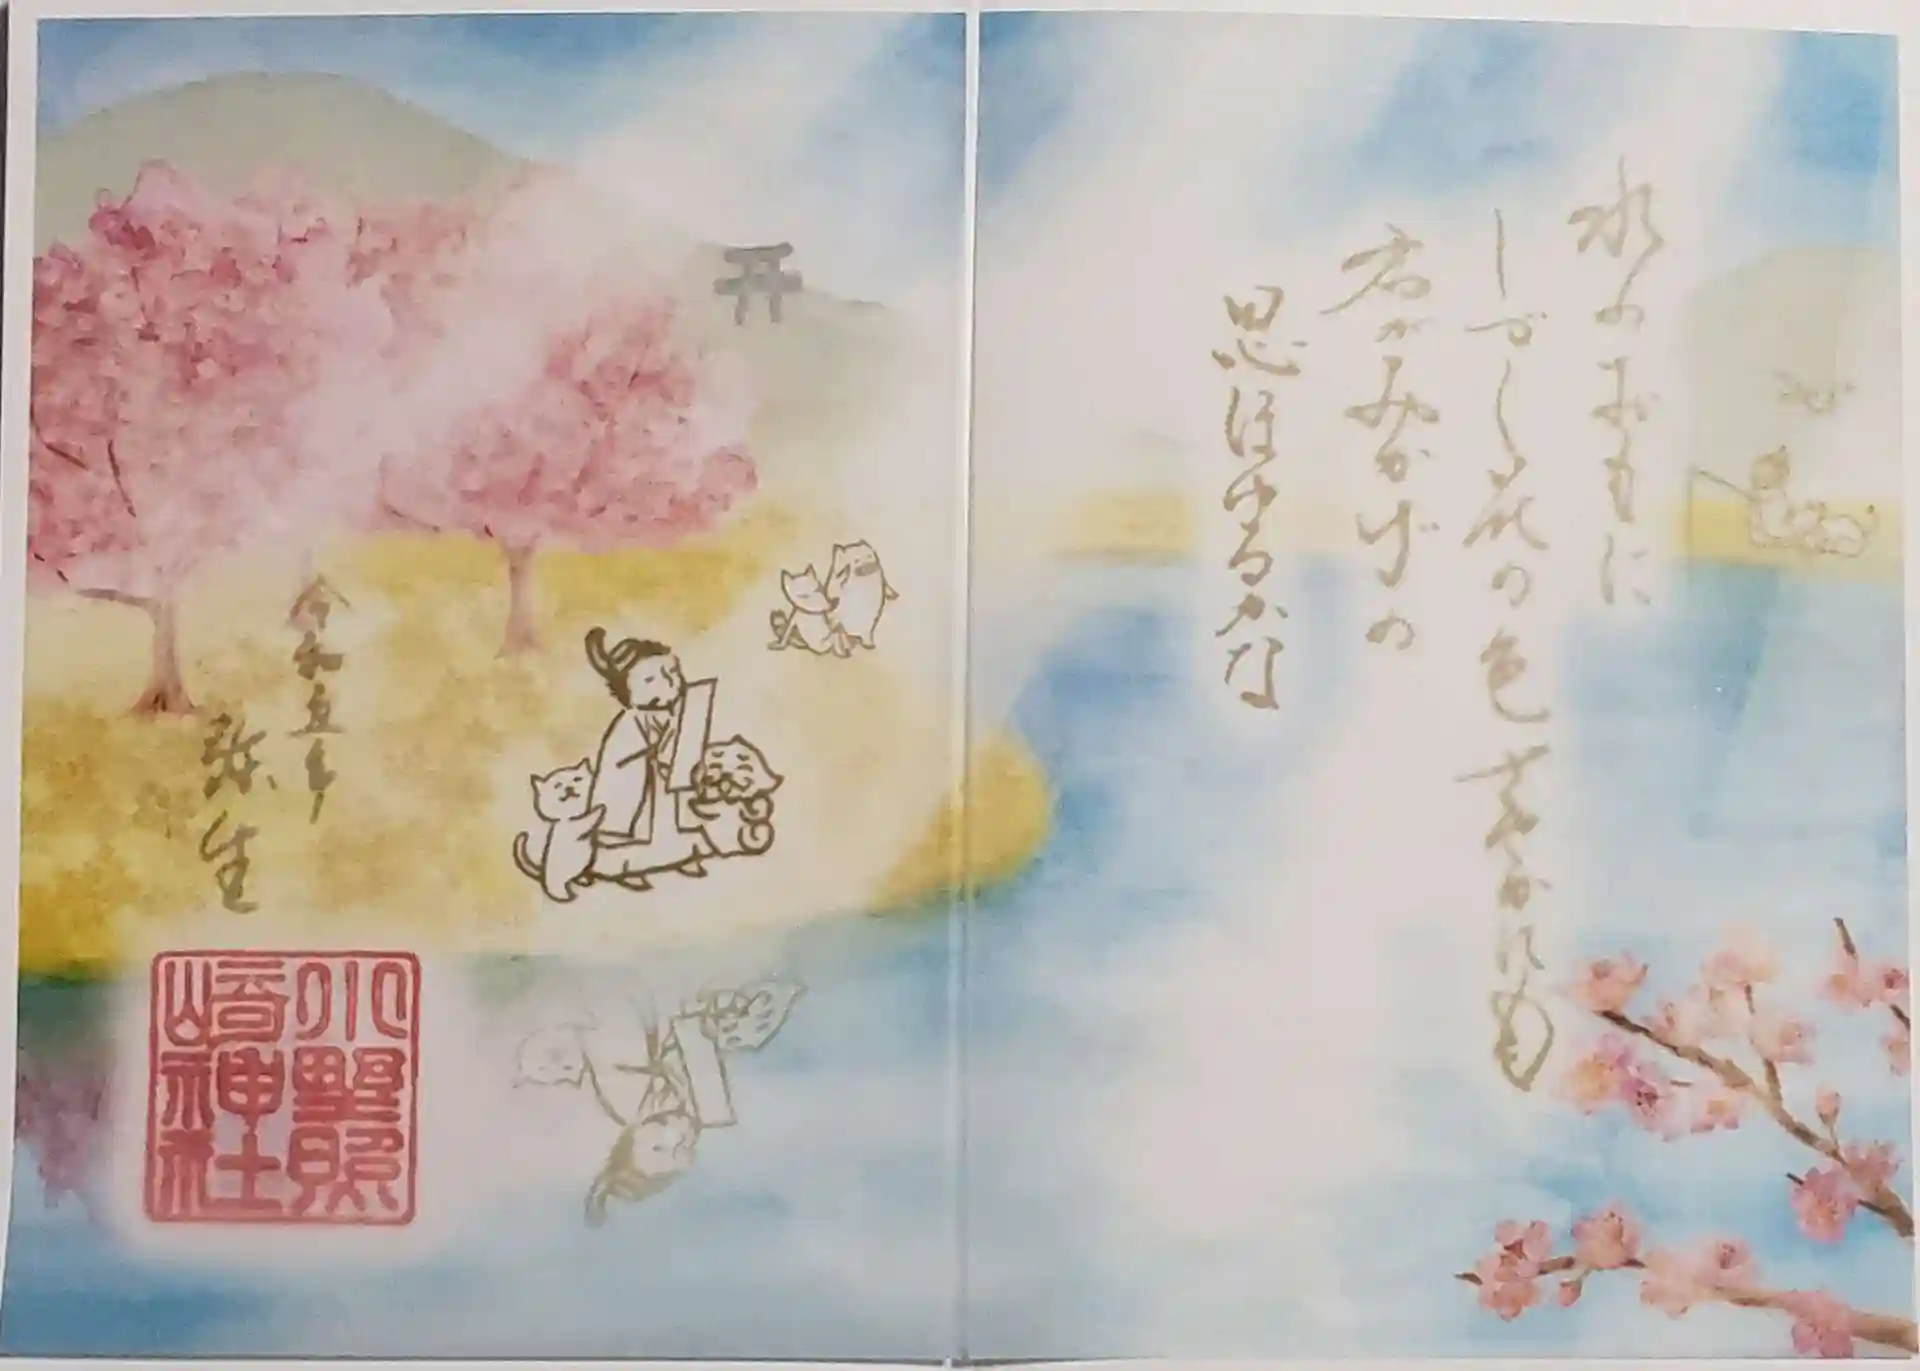 水のおもに
しづく花の色さやかにも
君がみかげの
思ほゆるかな
令和五年
弥生
小野照
崎神社